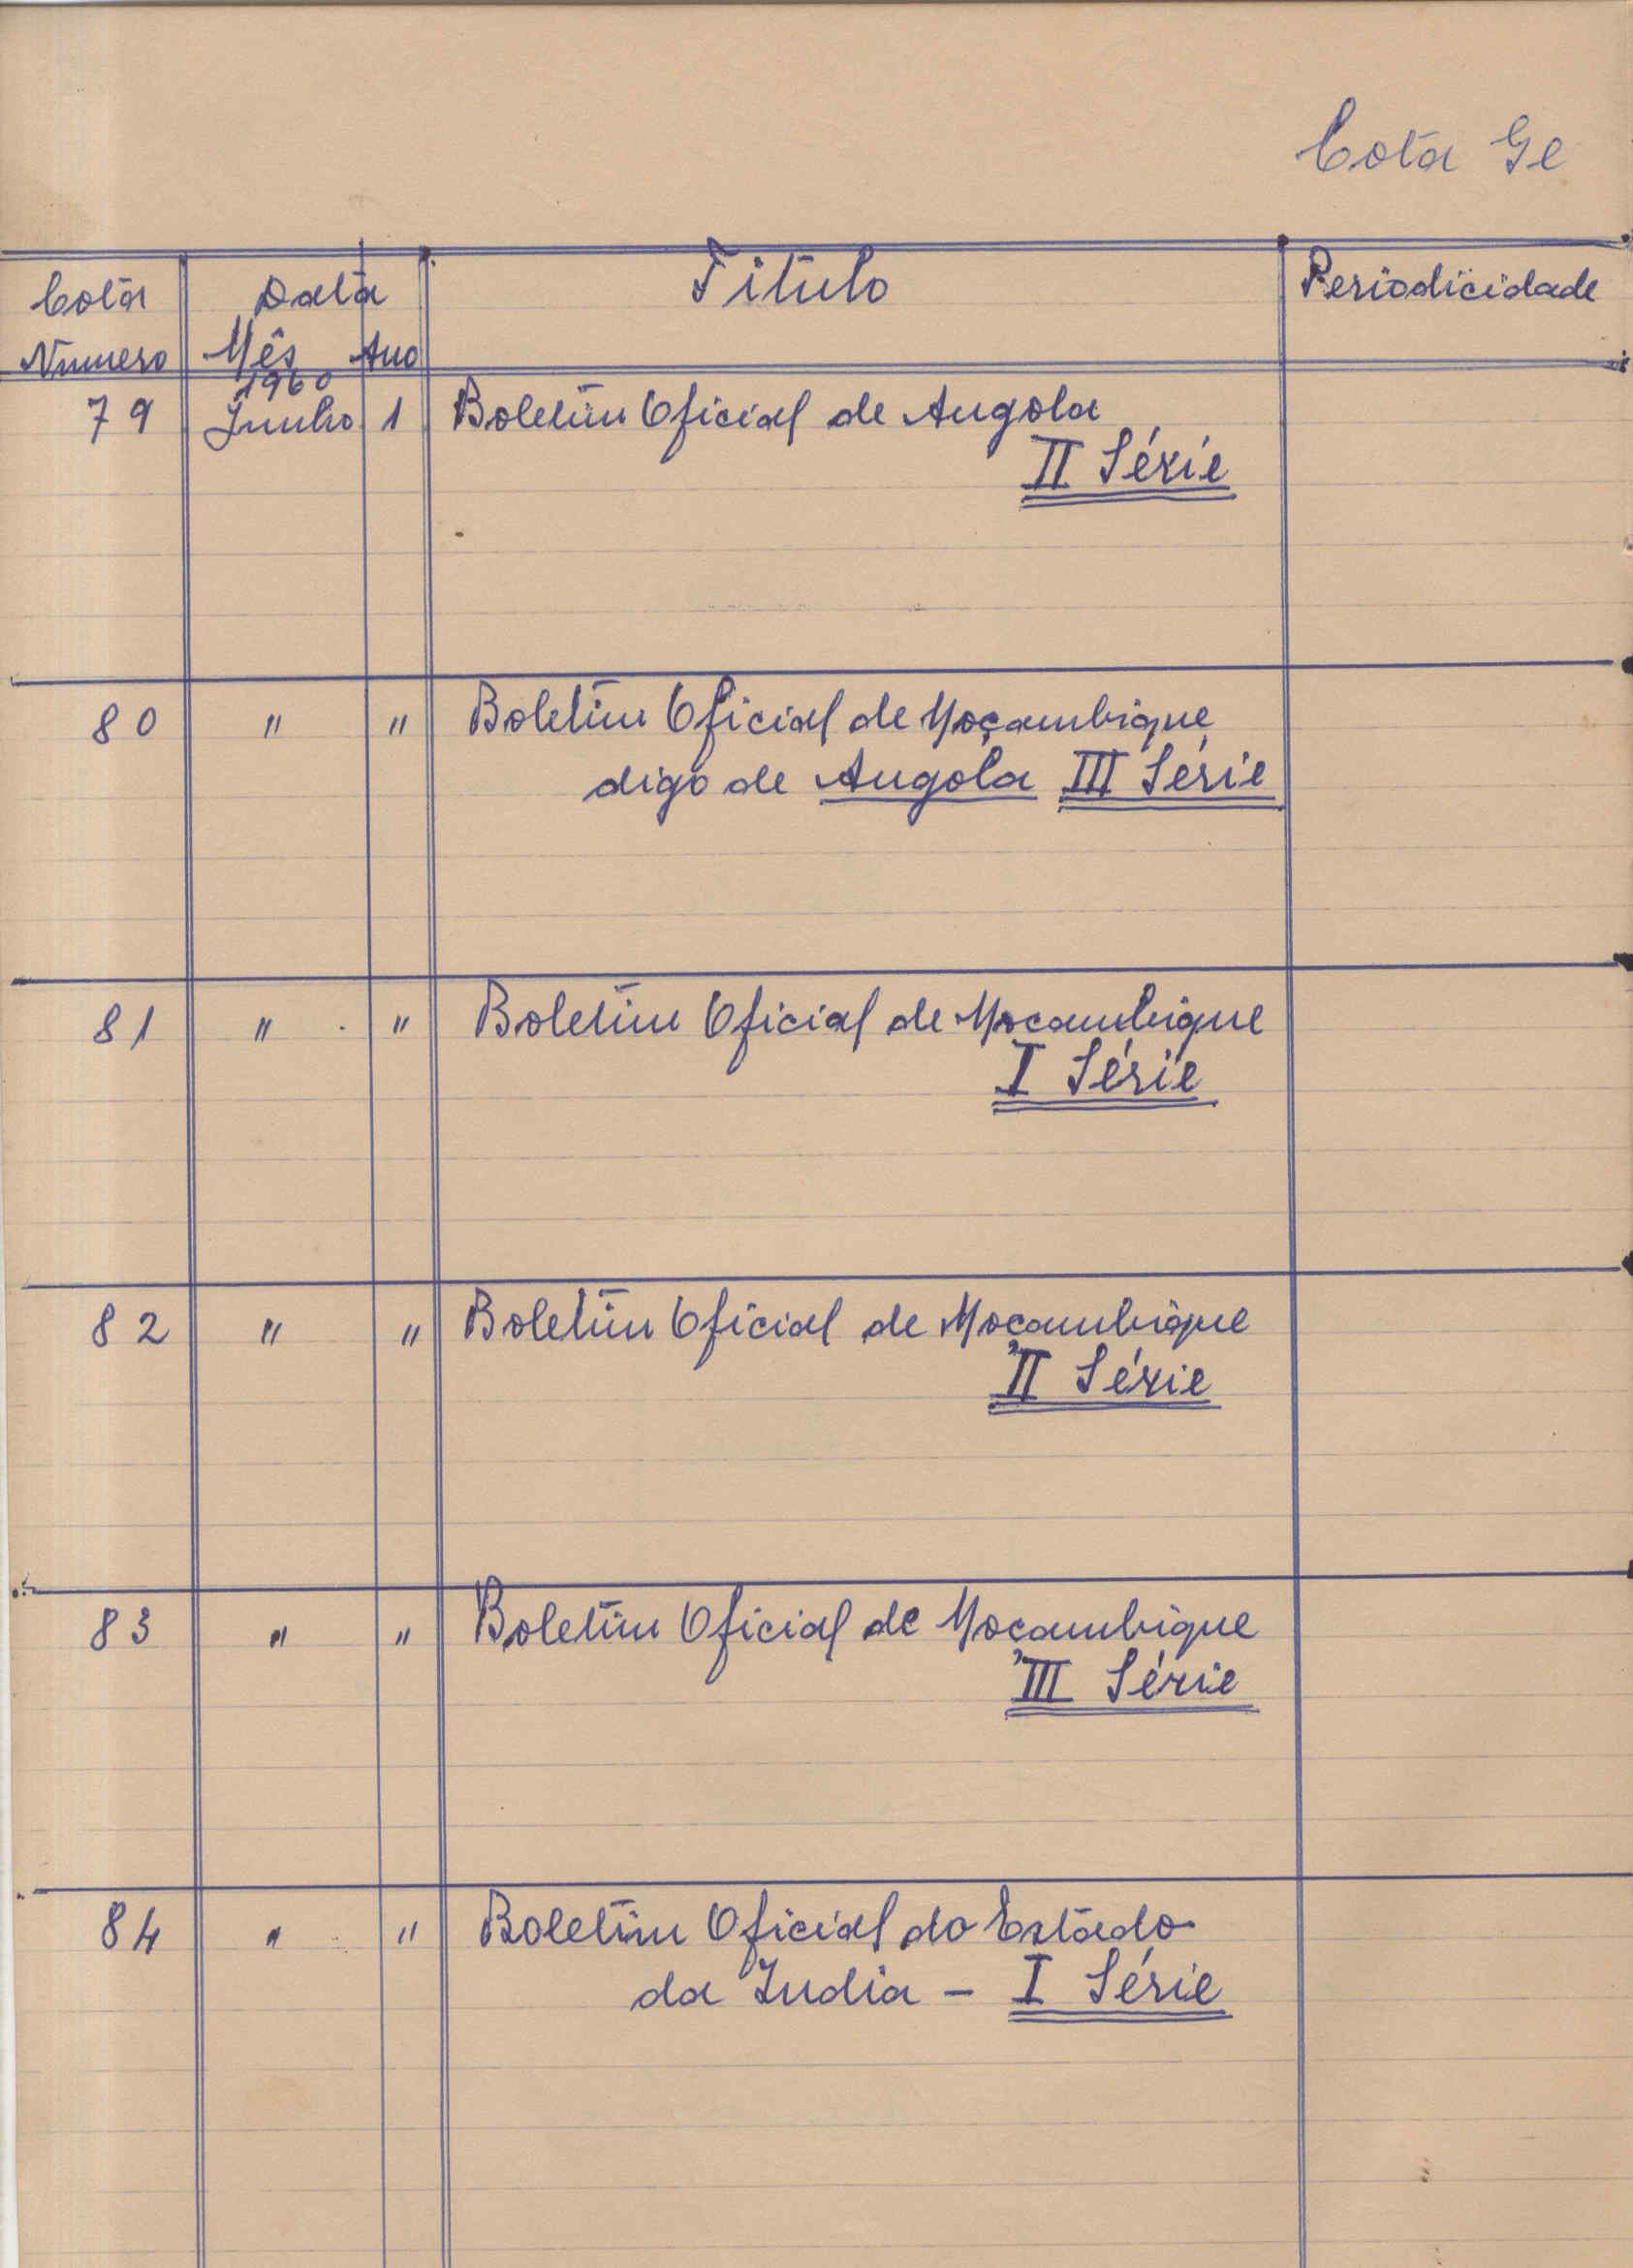 Cota Ge
Cota Data Titulo Periodicidade
Numero Mês Ano
1960
79 Junho 1 Boletim Oficial de Angola
II Série
80 " " Boletim Oficial de Moçambique
digo de Angola III Série
81 " " Boletim Oficial de Moçambique
I Série
82 " " Boletim Oficial de Moçambique
II Série
83 " " Boletim Oficial de Moçambique
III Série
84 " " Boletim Oficial do Estado
da India - I Série